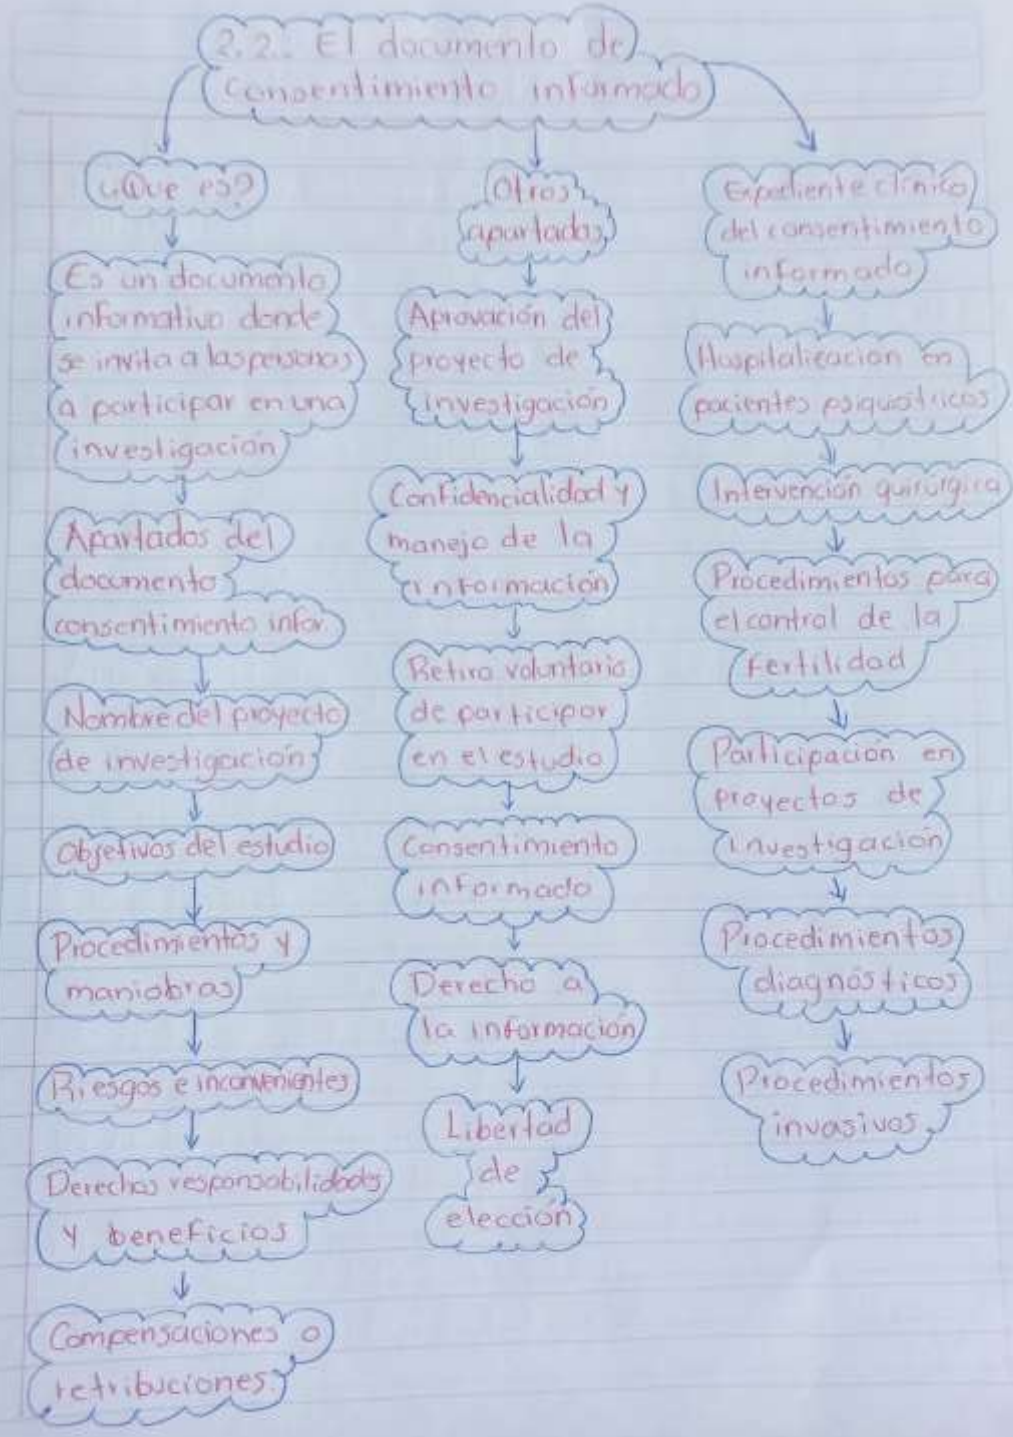 2.2. El documento de
consentimiento informado
¿Que es?
Es un documento
informativo donde
se invita a las personas
a participar en una
investigación
Apartados del
documento
consentimiento infor.
Nombre del proyecto
de investigación
Objetivos del estudio
Procedimientos y
maniobras
Riesgos e inconvenientes
Derechos responsabilidades
y beneficios
Compensaciones o
retribuciones.
Otros
apartados
Aprovación del
proyecto de
investigación
Confidencialidad y
manejo de la
información
Retiro voluntario
de participar
en el estudio
Consentimiento
informado
Derecho a
la información
Libertad
de
elección
Expediente clínico
del consentimiento
informado
Hospitalización en
pacientes psiquiátricos
Intervención quirúrgica
Procedimientos para
el control de la
fertilidad
Participación en
proyectos de
investigación
Procedimientos
diagnósticos
Procedimientos
invasivos.